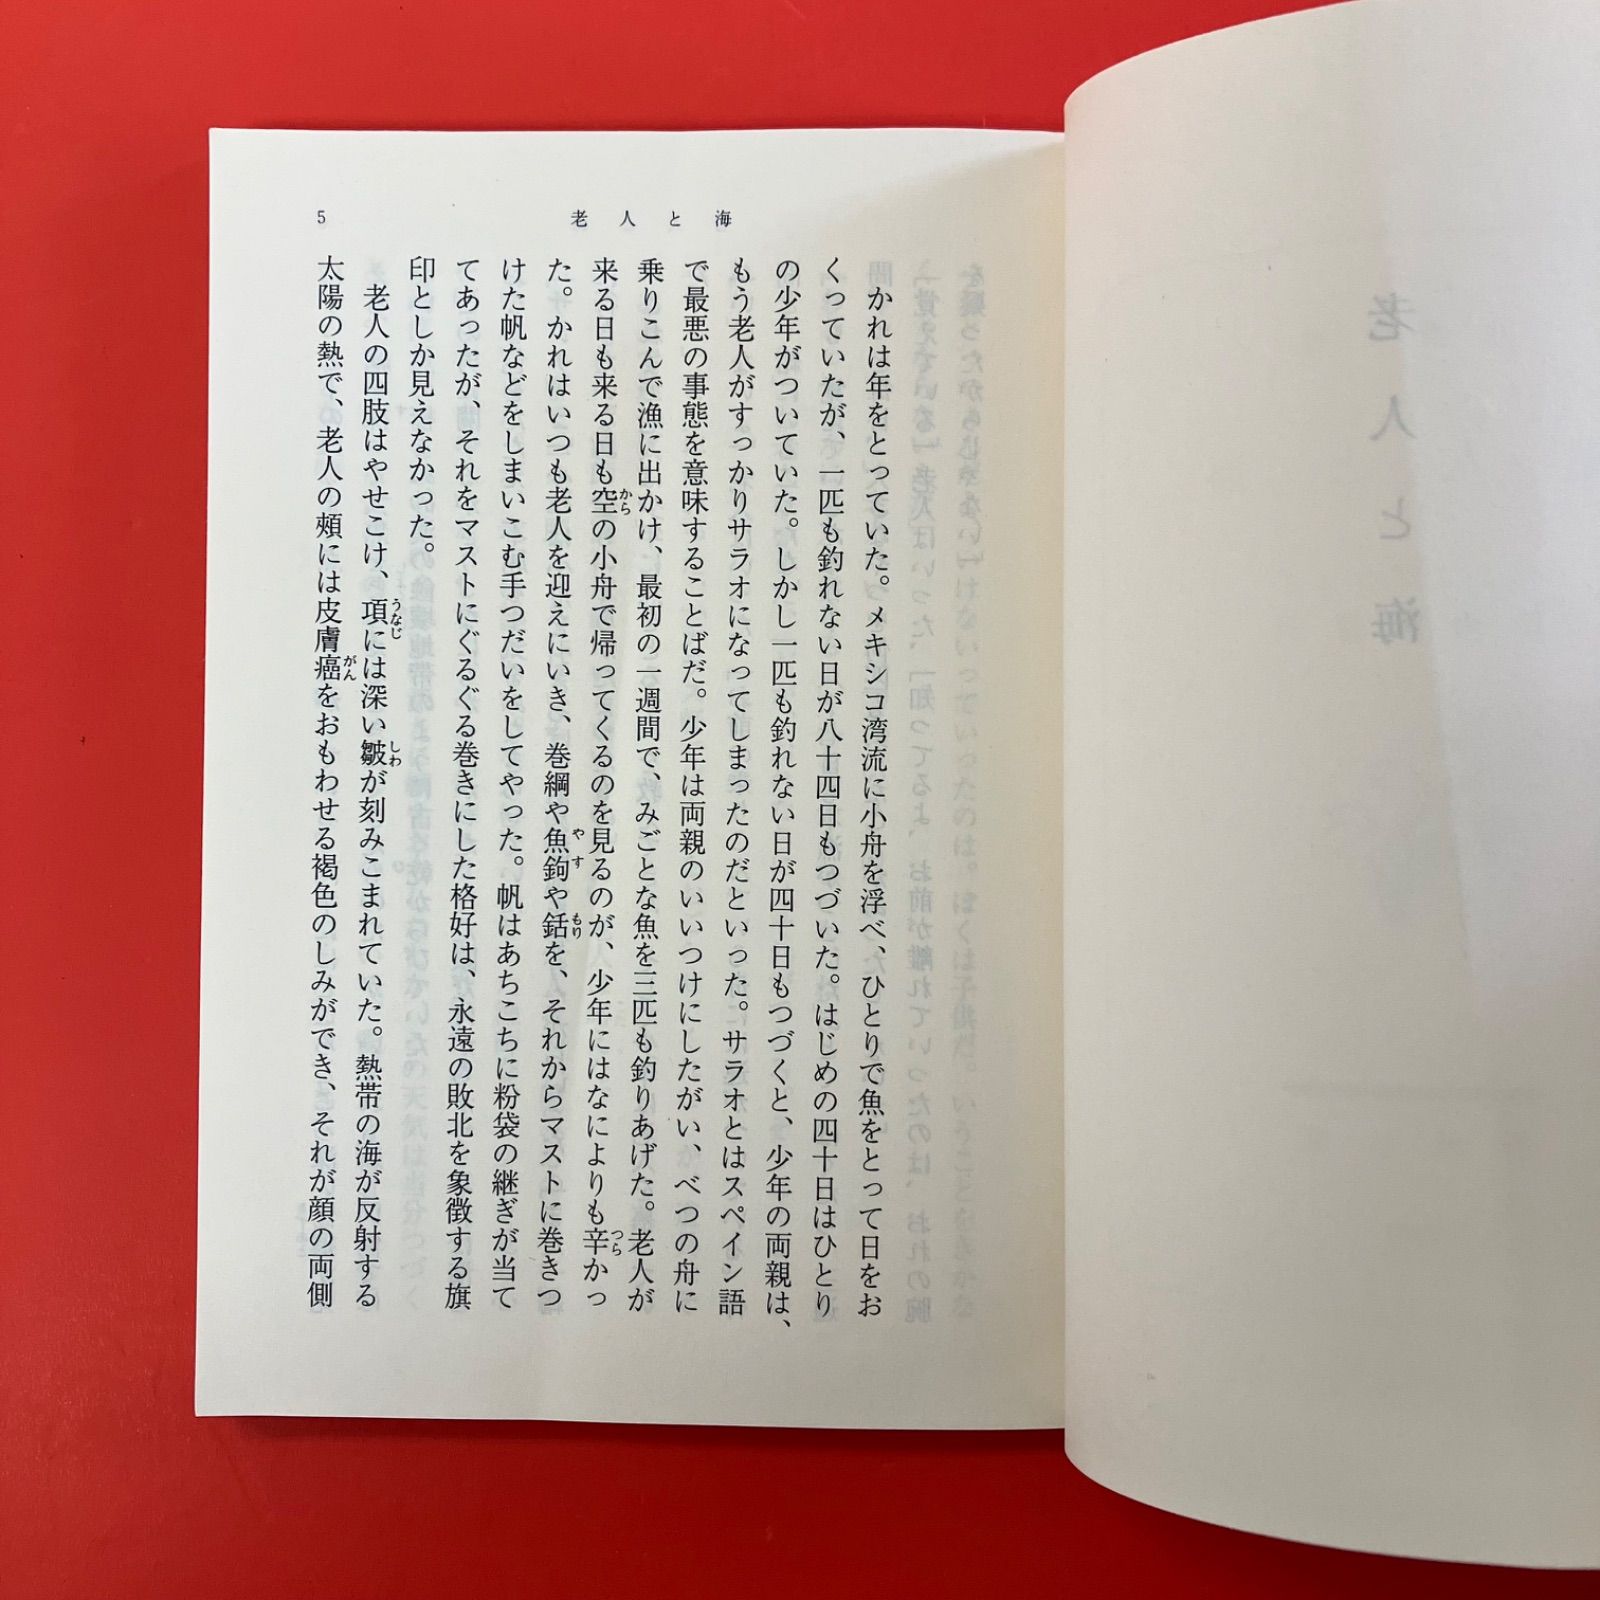 老人と海
5
かれは年をとっていた。メキシコ湾流に小舟を浮べ、ひとりで魚をとって日をお
くっていたが、一匹も釣れない日が八十四日もつづいた。はじめの四十日はひとり
の少年がついていた。しかし一匹も釣れない日が四十日もつづくと、少年の両親は、
もう老人がすっかりサラオになってしまったのだといった。サラオとはスペイン語
で最悪の事態を意味することばだ。少年は両親のいいつけにしたがい、べつの舟に
乗りこんで漁に出かけ、最初の一週間で、みごとな魚を三匹も釣りあげた。老人が
来る日も来る日も空からの小舟で帰ってくるのを見るのが、少年にはなによりも辛つらかっ
た。かれはいつも老人を迎えにいき、巻綱や魚鉤やすや銛もりを、それからマストに巻きつ
けた帆などをしまいこむ手つだいをしてやった。帆はあちこちに粉袋の継ぎが当て
てあったが、それをマストにぐるぐる巻きにした格好は、永遠の敗北を象徴する旗
印としか見えなかった。
老人の四肢はやせこけ、項うなじには深い皺しわが刻みこまれていた。熱帯の海が反射する
太陽の熱で、老人の頰には皮膚癌がんをおもわせる褐色のしみができ、それが顔の両側
老人と海